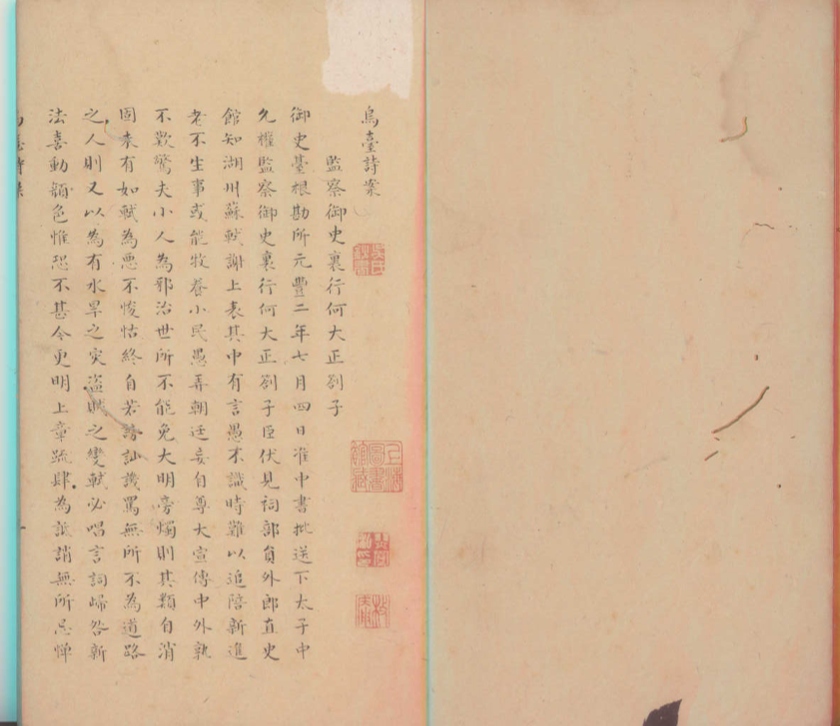 烏臺詩案
監察御史裏行何大正劄子
御史臺根勘所元豐二年七月四日准中書批送下太子中
允權監察御史裏行何大正劄子臣伏見祠部員外郎直史
館知湖州蘇軾謝上表其中有言愚不識時難以追陪新進
老不生事或能牧養小民愚弄朝廷妄自尊大宣傳中外孰
不歎驚夫小人為邪治世所不能免大明旁燭則其類自消
固未有如軾為惡不悛怙終自若謗訕譏罵無所不為道路
之人則又以為有水旱之灾盜賊之變軾必唱言詞歸咎新
法喜動顏色惟恐不甚今更明上章疏肆為詆誚無所忌憚